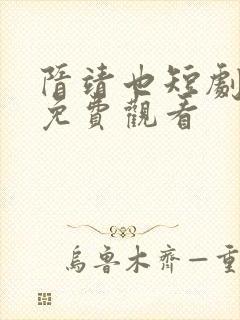 隋靖也短劇
免費觀看
烏魯木齊—重